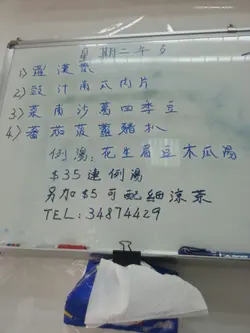 星期二午市
1) 羅漢齋
2) 豉汁南瓜肉片
3) 菜甫沙葛四季豆
4) 蕃茄菠蘿豬扒
例湯：花生眉豆木瓜湯
$35連例湯
另加$5可配細涼茶
TEL：34874429